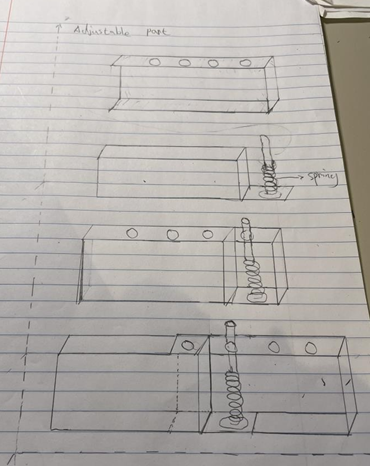 Adjustable part
spring